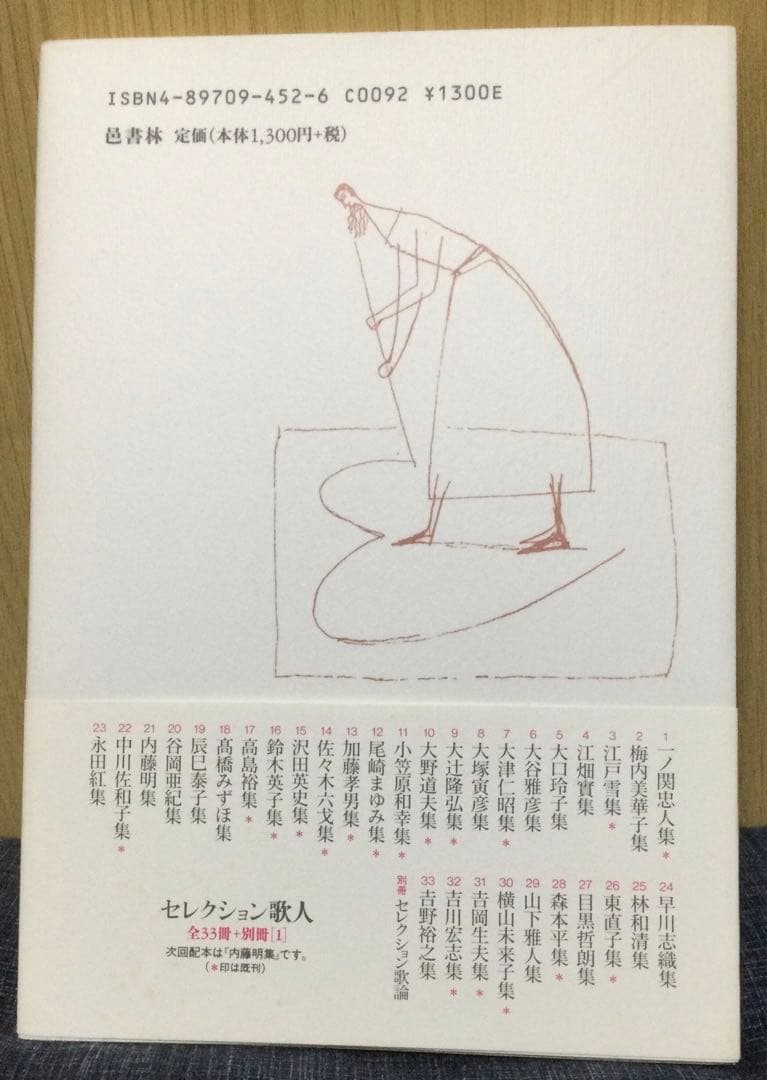 ISBN4-89709-452-6 C0092 ¥1300E
邑書林 定価(本体1,300円+税)
1 一ノ関忠人集*
2 梅内美華子集
3 江戸雪集*
4 江畑實集
5 大口玲子集
6 大谷雅彦集
7 大津仁昭集*
8 大塚寅彦集
9 大辻隆弘集*
10 大野道夫集*
11 小笠原和幸集*
12 尾崎まゆみ集*
13 加藤孝男集*
14 佐々木六戈集*
15 沢田英史集*
16 鈴木英子集*
17 高島裕集*
18 髙橋みずほ集
19 辰巳泰子集
20 谷岡亜紀集
21 内藤明集
22 中川佐和子集*
23 永田紅集
24 早川志織集
25 林和清集
26 東直子集*
27 目黒哲朗集
28 森本平集*
29 山下雅人集
30 横山未来子集*
31 吉岡生夫集*
32 吉川宏志集*
33 吉野裕之集
別冊 セレクション歌論
セレクション歌人
全33冊+別冊[1]
次回配本は『内藤明集』です。
(*印は既刊)